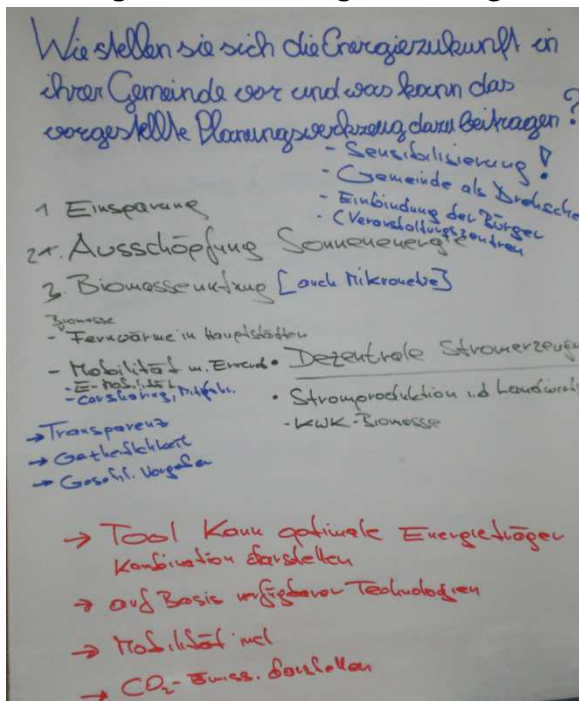 Wie stellen sie sich die Energiezukunft in
ihrer Gemeinde vor und was kann das
vorgestellte Planungswerkzeug dazu beitragen?
- Sensibilisierung!
- Gemeinde als Drehsche
- Einbindung der Bürger
- (Veranstaltungszentren
1 Einsparung
2. Ausschöpfung Sonnenenergie
3. Biomassenutzung [auch Mikronetze]
Biomasse
- Fernwärme in Hauptstädten
- Mobilität m.
- E-Mobilität
- Carsharing, Mitfahr.
• Dezentrale Stromerzeugu
• Stromproduktion i.d Landwirt
- KWK-Biomasse
→ Transparenz
→
→ Gesetzl. Vorgaben
→ Tool kann optimale Energieträger
Kombination darstellen
→ auf Basis verfügbarer Technologien
→ Mobilität incl
→ CO₂-Emiss. darstellen